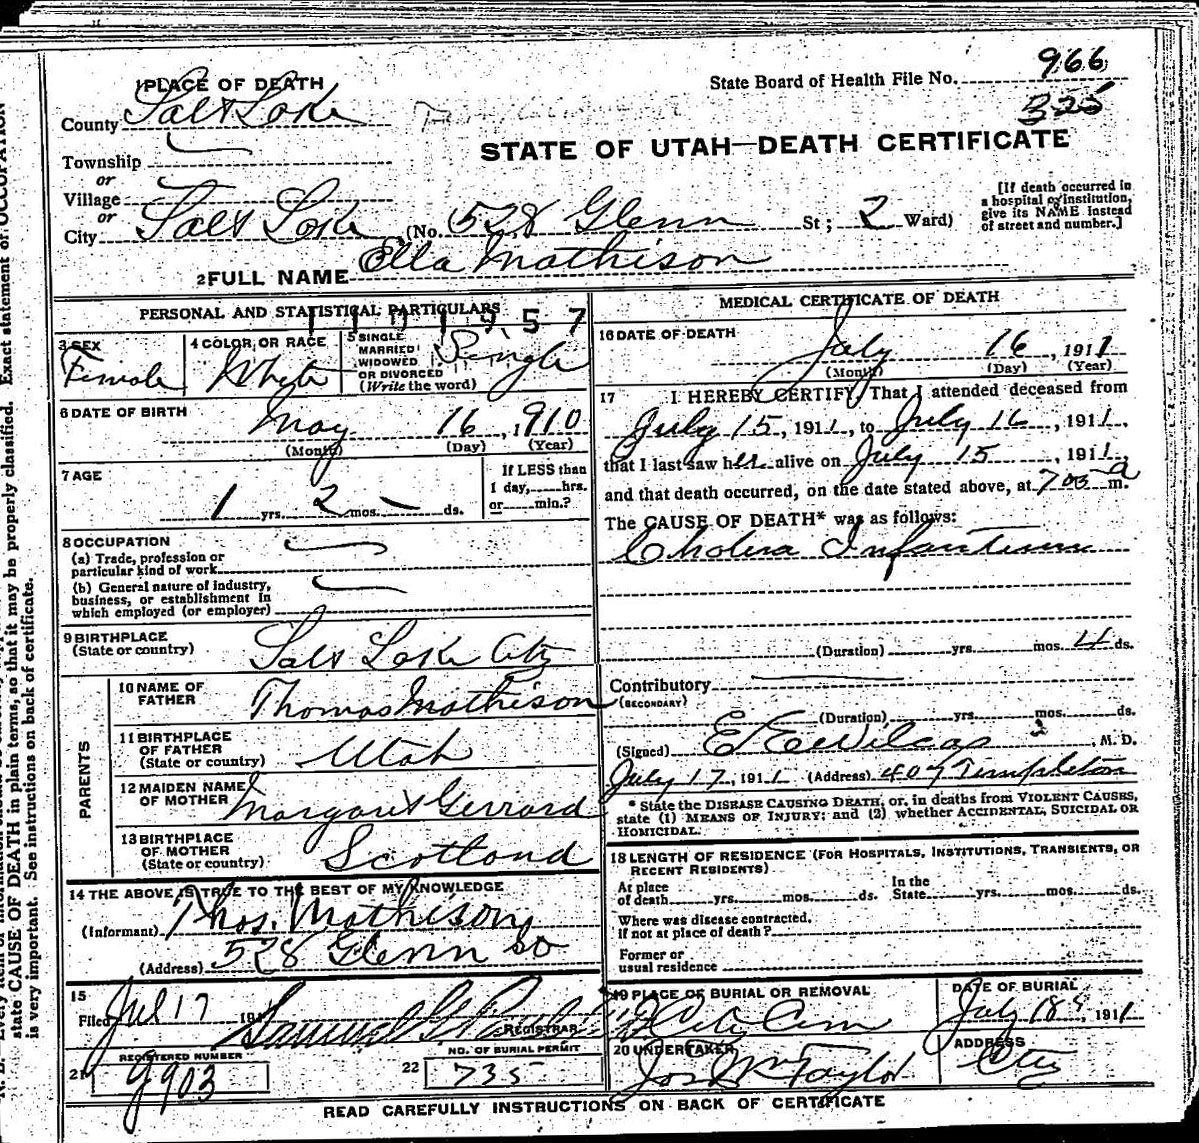 1 PLACE OF DEATH
State Board of Health File No. 966
325
County Salt Lake
STATE OF UTAH—DEATH CERTIFICATE
Township
or
Village
or
City Salt Lake (No. 528 Glenn St; 2 Ward)
[If death occurred in
a hospital or institution,
give its NAME instead
of street and number.]
2 FULL NAME Ella Mathison
PERSONAL AND STATISTICAL PARTICULARS
3 SEX
Female
4 COLOR OR RACE
White
5 SINGLE
MARRIED
WIDOWED
OR DIVORCED
(Write the word)
Single
6 DATE OF BIRTH
May 16, 1910
(Month) (Day) (Year)
7 AGE
1 yrs. 2 mos. — ds.
If LESS than
1 day, hrs.
or min.?
8 OCCUPATION
(a) Trade, profession or
particular kind of work
(b) General nature of industry,
business, or establishment in
which employed (or employer)
9 BIRTHPLACE
(State or country)
Salt Lake City
PARENTS
10 NAME OF
FATHER
Thomas Mathison
11 BIRTHPLACE
OF FATHER
(State or country)
Utah
12 MAIDEN NAME
OF MOTHER
Margaret Gerrard
13 BIRTHPLACE
OF MOTHER
(State or country)
Scotland
14 THE ABOVE IS TRUE TO THE BEST OF MY KNOWLEDGE
(Informant) Thos. Mathison
(Address) 528 Glenn
15
Filed Jul 17 191
REGISTRAR
REGISTERED NUMBER
21 G903
NO. OF BURIAL PERMIT
22 735
MEDICAL CERTIFICATE OF DEATH
16 DATE OF DEATH
July 16, 1911
(Month) (Day) (Year)
17 I HEREBY CERTIFY, That I attended deceased from
July 15, 1911, to July 16, 1911,
that I last saw her alive on July 15, 1911,
and that death occurred, on the date stated above, at 705 a m.
The CAUSE OF DEATH* was as follows:
Cholera Infantum
(Duration) yrs. mos. ds.
Contributory
(SECONDARY)
(Duration) yrs. mos. ds.
(Signed) M. D.
July 17, 1911 (Address) 407 Templeton
* State the DISEASE CAUSING DEATH, or, in deaths from VIOLENT CAUSES,
state (1) MEANS OF INJURY; and (2) whether ACCIDENTAL, SUICIDAL OR
HOMICIDAL.
18 LENGTH OF RESIDENCE (FOR HOSPITALS, INSTITUTIONS, TRANSIENTS, OR
RECENT RESIDENTS)
At place
of death yrs. mos. ds.
In the
State yrs. mos. ds.
Where was disease contracted,
if not at place of death?
Former or
usual residence
19 PLACE OF BURIAL OR REMOVAL
City Cem
DATE OF BURIAL
July 18, 1911
20 UNDERTAKER
Jos Wm Taylor
ADDRESS
City
READ CAREFULLY INSTRUCTIONS ON BACK OF CERTIFICATE
state CAUSE OF DEATH in plain terms, so that it may be properly classified. Exact statement of OCCUPATION
is very important. See instructions on back of certificate.